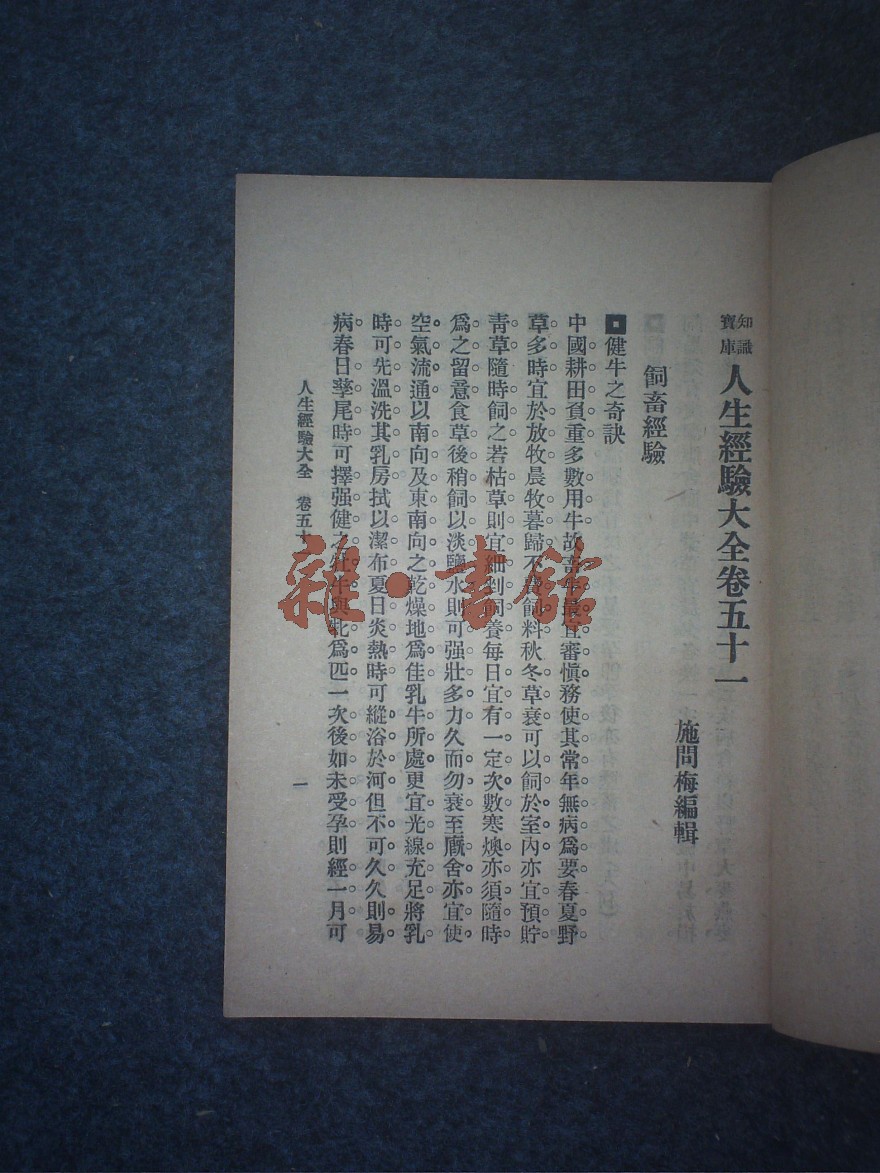 知識寶庫
人生經驗大全卷五十一
施問梅編輯
飼畜經驗
健牛之奇訣
中國耕田負重多數用牛故畜牛最宜審愼務使其常年無病爲要春夏野
草多時宜於放牧晨牧暮歸不費飼料秋冬草衰可以飼於室內亦宜預貯
靑草隨時飼之若枯草則宜細剉飼養每日宜有一定次數寒燠亦須隨時
爲之留意食草後稍飼以淡鹽水則可强壯多力久而勿衰至廄舍亦宜使
空氣流通以南向及東南向之乾燥地爲佳乳牛所處更宜光線充足將乳
時可先溫洗其乳房拭以潔布夏日炎熱時可縱浴於河但不可久久則易
病春日孳尾時可擇强健之牡牛與牝爲匹一次後如未受孕則經一月可
人生經驗大全 卷五十
一
雜·書館